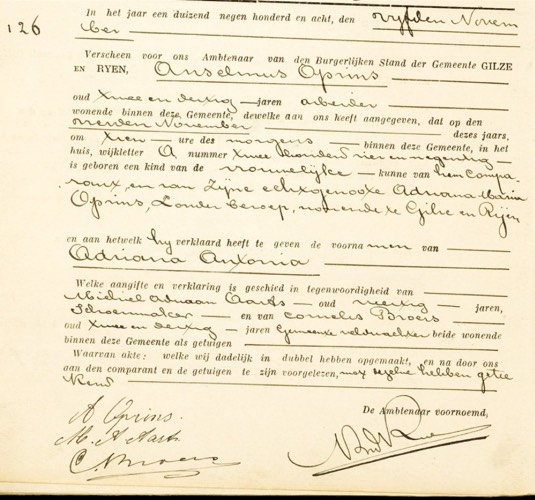 126
In het jaar een duizend negen honderd en acht, den vyfden Novem
ber
Verscheen voor ons Ambtenaar van den Burgerlijken Stand der Gemeente GILZE
EN RYEN, Anselmus Oprins
oud twee en dertig jaren arbeider
wonende binnen deze Gemeente, dewelke aan ons heeft aangegeven, dat op den
vierden November dezes jaars,
om tien ure des morgens binnen deze Gemeente, in het
huis, wijkletter A nummer twee honderd vier en negentig
is geboren een kind van de vrouwelijke kunne van hem compa
rant, en van zyne echtgenoote Adriana Maria
Oprins, zonder beroep, wonende te Gilze en Rijen
en aan hetwelk hy verklaard heeft te geven de voorna men van
Adriana Antonia
Welke aangifte en verklaring is geschied in tegenwoordigheid van
Michiel Adriaan Aarts oud veertig jaren,
Schoenmaker en van Cornelis Broers
oud twee en dertig jaren Gemeente veldwachter beide wonende
binnen deze Gemeente als getuigen
Waarvan akte: welke wij dadelijk in dubbel hebben opgemaakt, en na door ons
aan den comparant en de getuigen te zijn voorgelezen, met dezelve hebben getee
kend
De Ambtenaar voornoemd,
A Oprins.
M. A Aarts
C Broers